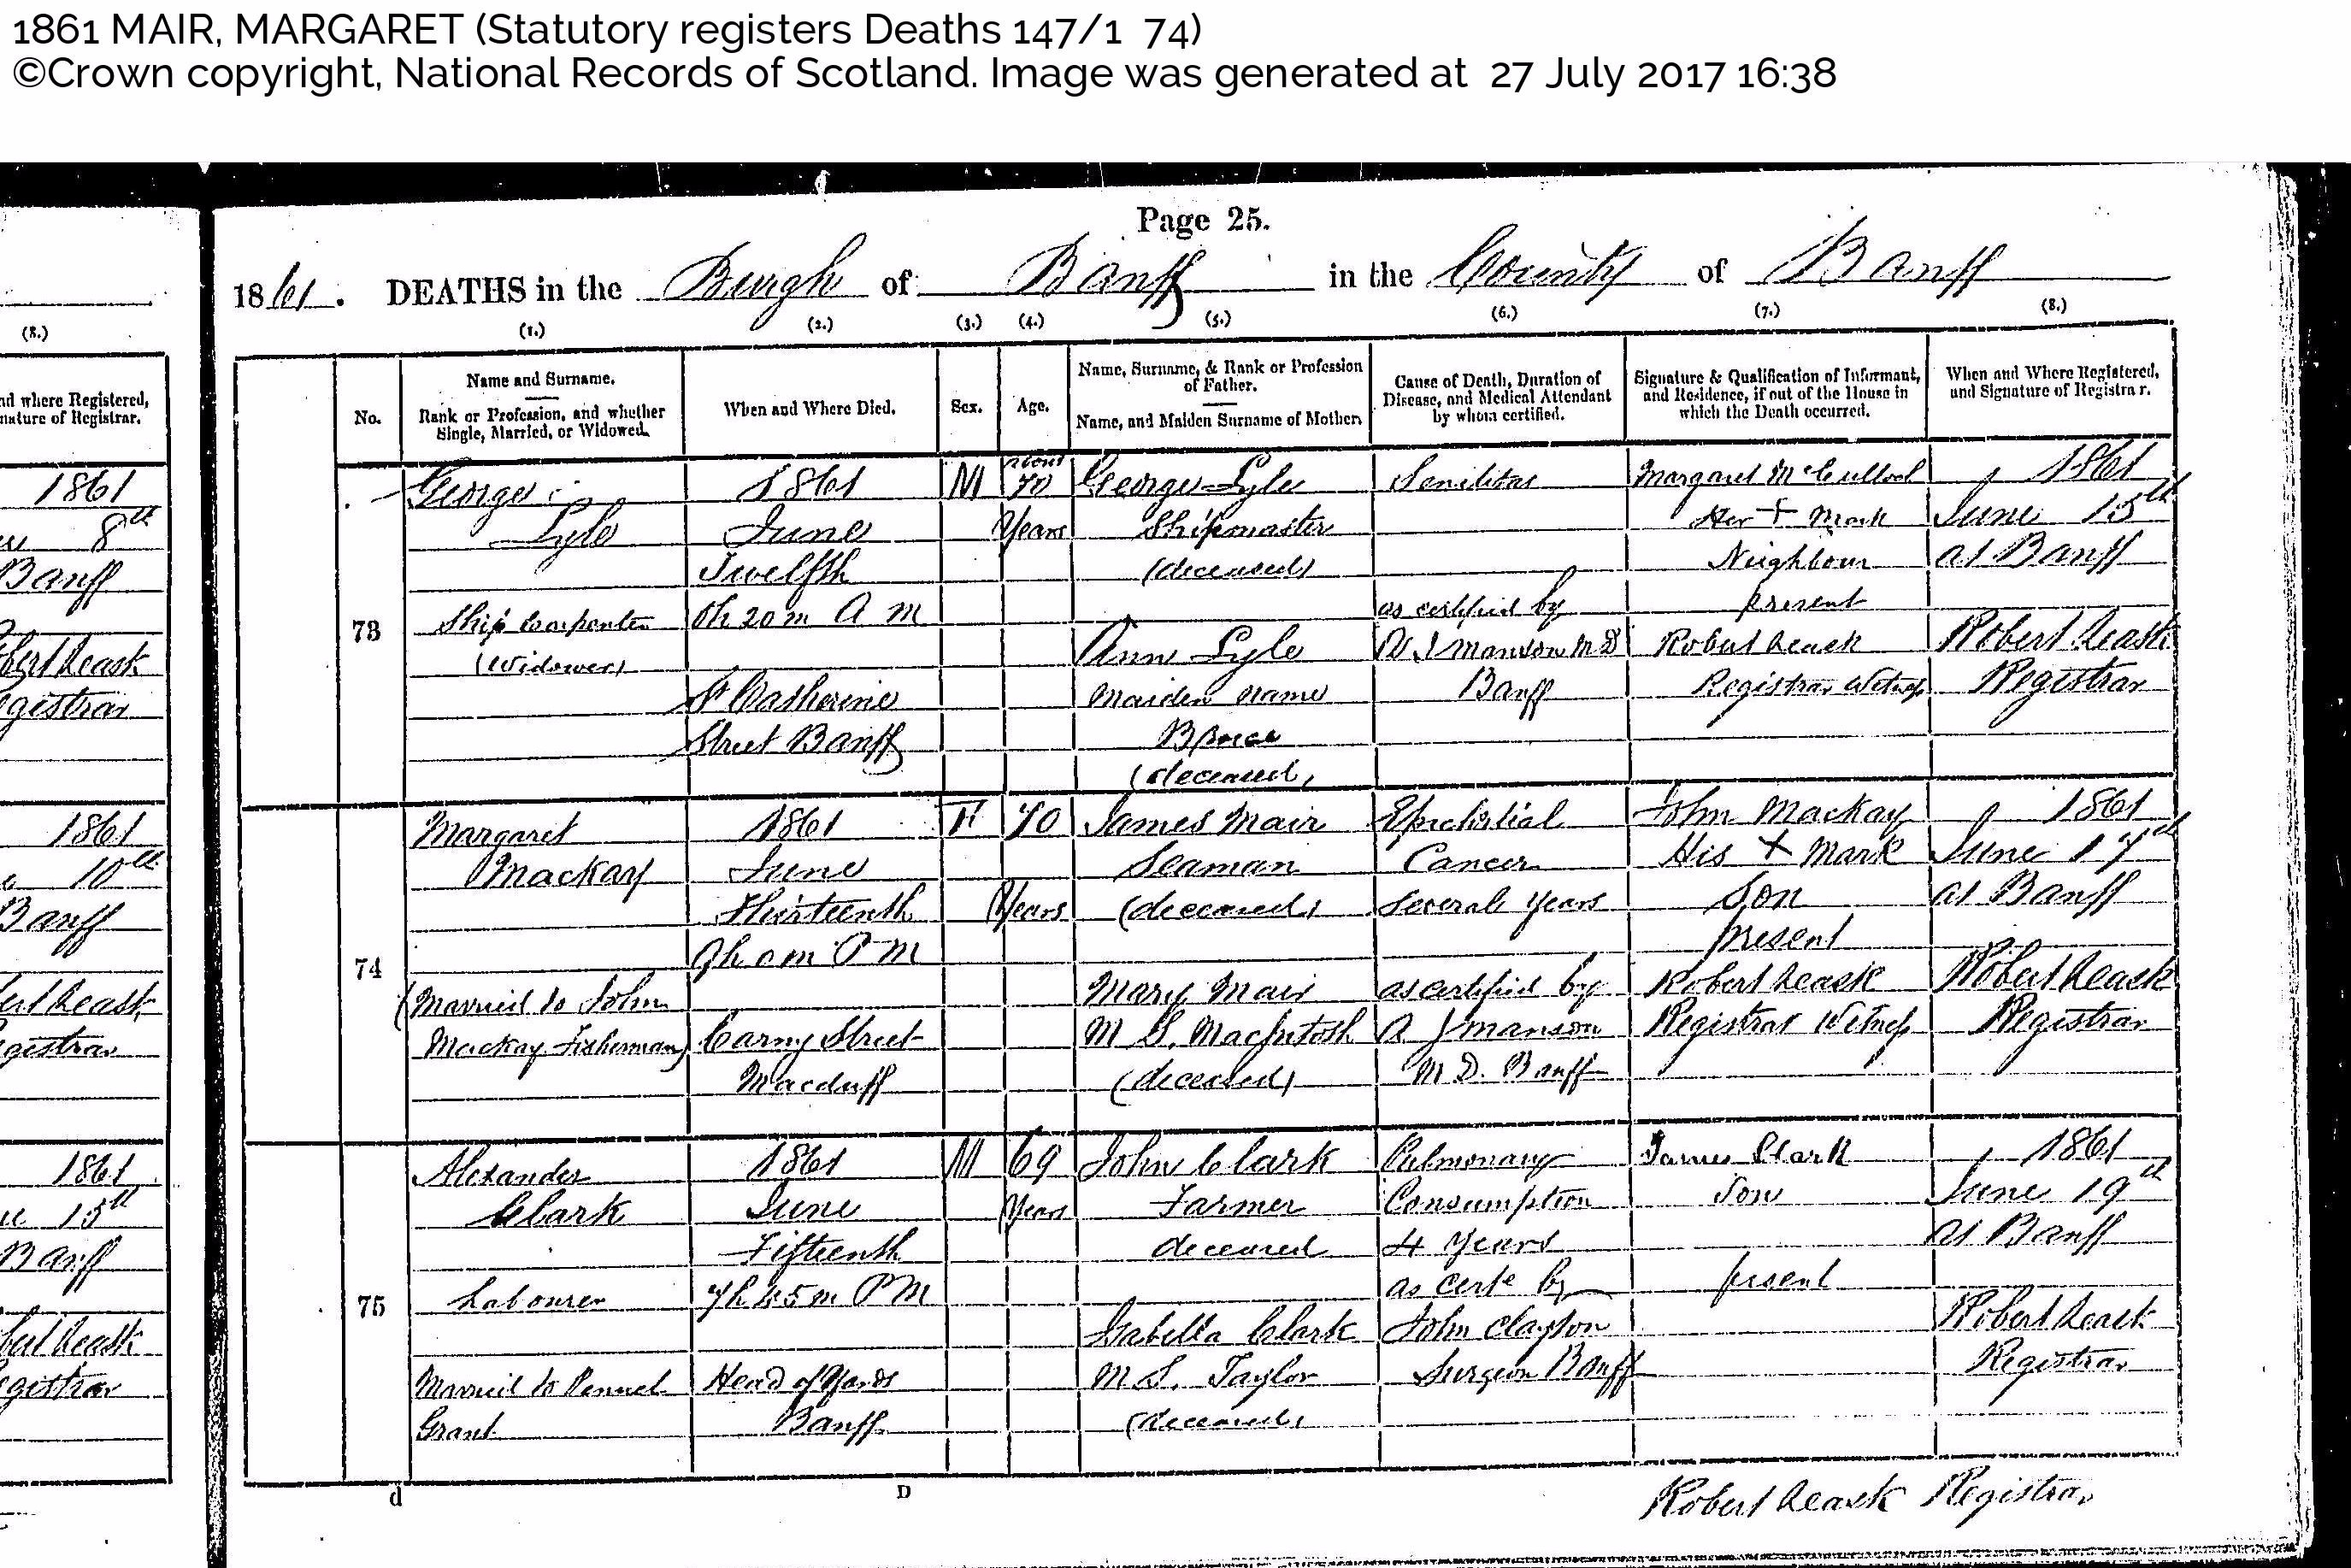 1861 MAIR, MARGARET (Statutory registers Deaths 147/1 74)
©Crown copyright, National Records of Scotland. Image was generated at 27 July 2017 16:38
Page 25.
1861. DEATHS in the Burgh of Banff in the County of Banff
(8.)
(1.) (2.) (3.) (4.) (5.) (6.) (7.) (8.)
nd where Registered,
nature of Registrar.
No.
Name and Surname.
Rank or Profession, and whether
Single, Married, or Widowed.
When and Where Died.
Sex.
Age.
Name, Surname, & Rank or Profession
of Father.
Name, and Maiden Surname of Mother.
Cause of Death, Duration of
Disease, and Medical Attendant
by whom certified.
Signature & Qualification of Informant,
and Residence, if out of the House in
which the Death occurred.
When and Where Registered,
and Signature of Registrar.
1861
8th
Banff
bert Leask
gistrar
73
George
Lyle
Ship Carpenter
(Widower)
1861
June
Twelfth
0h 20m A M
St Catherine
Street Banff
M
about
70
Years
George Lyle
Shipmaster
(deceased)
Ann Lyle
Maiden name
(deceased)
Senilitas
as certified by
Manson M D
Banff
Margaret McCulloch
Her + Mark
Neighbour
present
Robert Leask
Registrar Witness
1861
June 15th
at Banff
Robert Leask
Registrar
1861
10th
Banff
ert Leask
gistrar
74
Margaret
Mackay
(Married to John
Mackay Fisherman)
1861
June
Thirteenth
9h 0m P M
Carny Street
Macduff
F
70
Years
James Mair
Seaman
(deceased)
Mary Mair
M S. MacIntosh
(deceased)
Epithelial
Cancer
Several Years
as certified by
A J Manson
M D. Banff
John Mackay
His + Mark
Son
present
Robert Leask
Registrar Witness
1861
June 17th
at Banff
Robert Leask
Registrar
1861
15th
Banff
bert Leask
gistrar
75
Alexander
Clark
Labourer
Married to Pennel
Grant
1861
June
Fifteenth
7h 45m P M
Head of Yards
Banff
M
69
Years
John Clark
Farmer
deceased
Isabella Clark
M S. Taylor
(deceased)
Pulmonary
Consumption
4 Years
as certe by
John Clayton
Surgeon Banff
James Clark
Son
present
1861
June 19th
at Banff
Robert Leask
Registrar
d D
Robert Leask Registrar